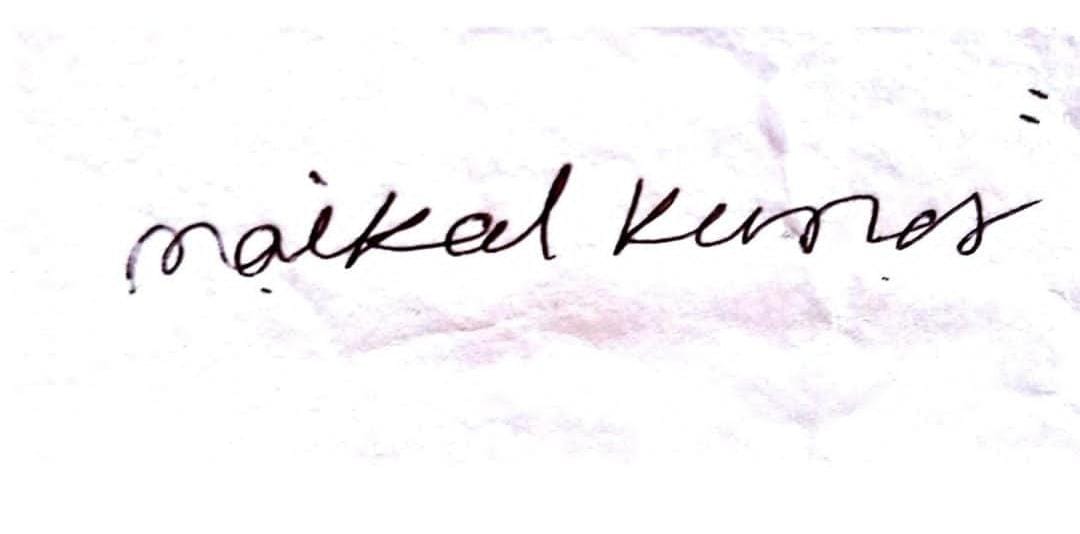 maikal kumar